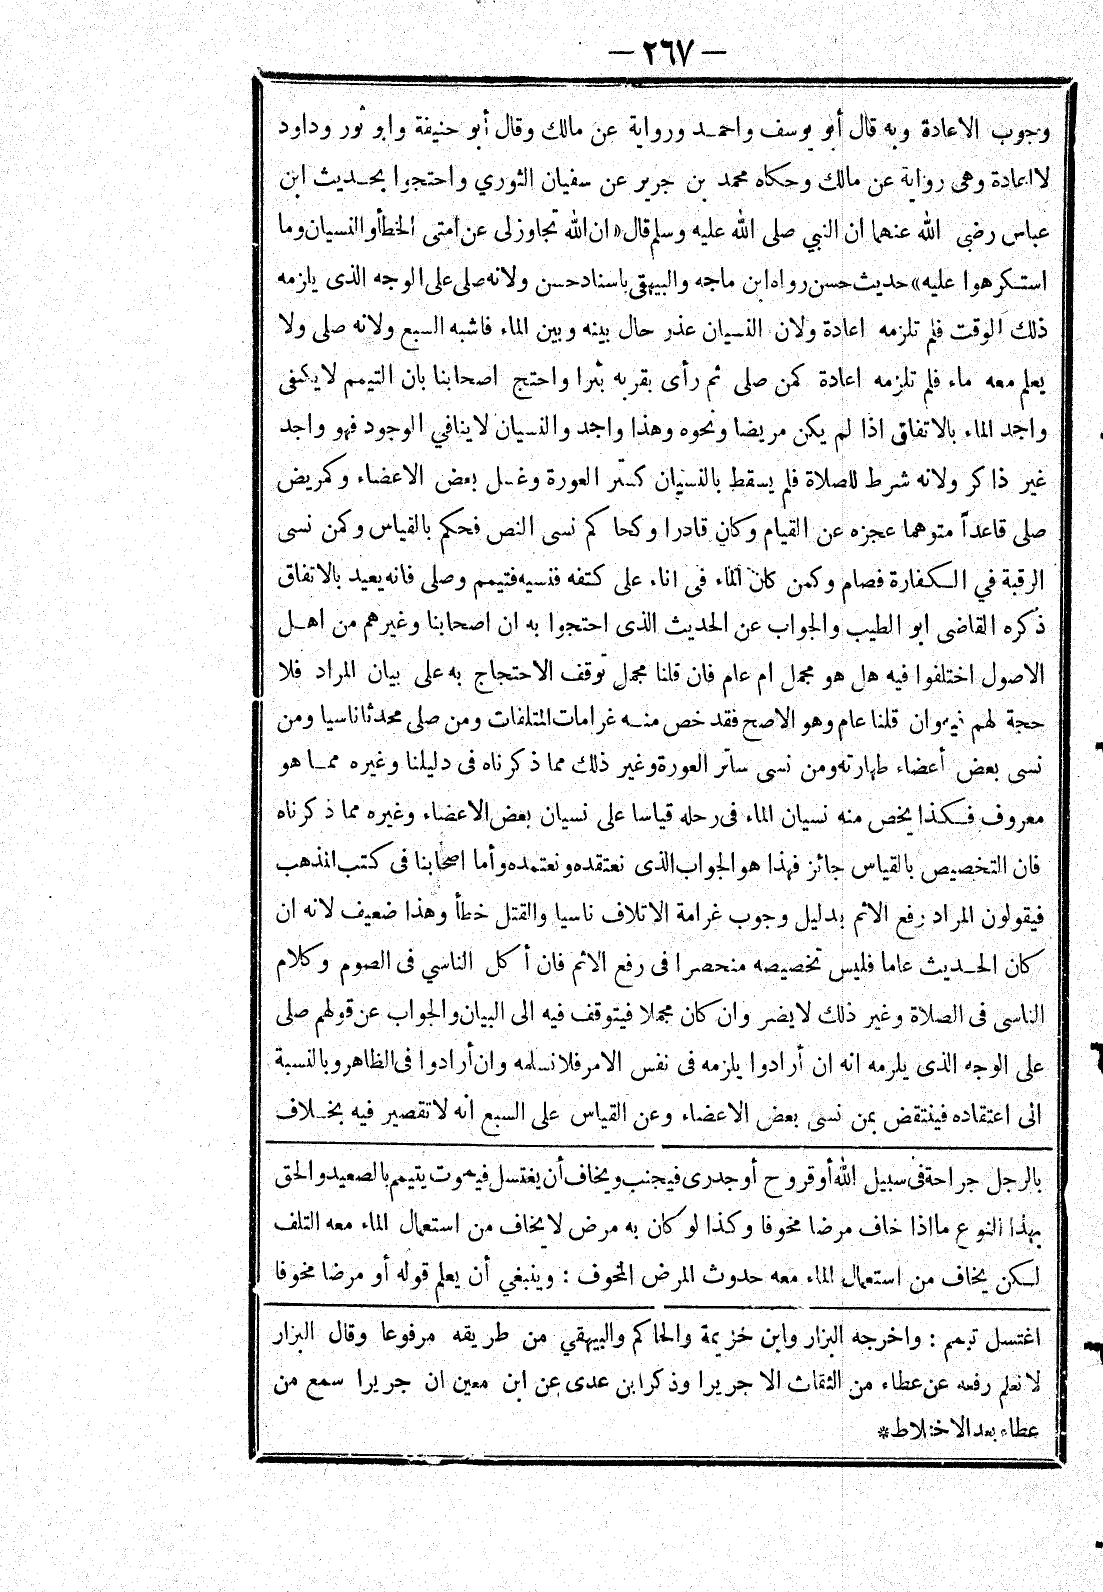 — ٢٦٧ —
وجوب الاعادة وبه قال أبو يوسف واحمد ورواية عن مالك وقال أبو حنيفة وابو ثور وداود
لا اعادة وهى رواية عن مالك وحكاه محمد بن جرير عن سفيان الثوري واحتجوا بحديث ابن
عباس رضي الله عنهما ان النبي صلى الله عليه وسلم قال «ان الله تجاوز لى عن امتى الخطأ والنسيان وما
استكرهوا عليه» حديث حسن رواه ابن ماجه والبيهقى باسناد حسن ولانه صلى على الوجه الذى يلزمه
ذلك الوقت فلم تلزمه اعادة ولان النسيان عذر حال بينه وبين الماء فاشبه السبع ولانه صلى ولا
يعلم معه ماء فلم تلزمه اعادة كمن صلى ثم رأى بقربه بئرا واحتج اصحابنا بان التيمم لا يكفى
واجد الماء بالاتفاق اذا لم يكن مريضا ونحوه وهذا واجد والنسيان لا ينافي الوجود فهو واجد
غير ذاكر ولانه شرط للصلاة فلم يسقط بالنسيان كستر العورة وغسل بعض الاعضاء وكمريض
صلى قاعداً متوهما عجزه عن القيام وكان قادرا وكحاكم نسى النص فحكم بالقياس وكمن نسى
الرقبة في الكفارة فصام وكمن كان الماء فى اناء على كتفه فنسيه فتيمم وصلى فانه يعيد بالاتفاق
ذكره القاضى ابو الطيب والجواب عن الحديث الذى احتجوا به ان اصحابنا وغيرهم من اهل
الاصول اختلفوا فيه هل هو مجمل ام عام فان قلنا مجمل توقف الاحتجاج به على بيان المراد فلا
حجة لهم فيه وان قلنا عام وهو الاصح فقد خص منه غرامات المتلفات ومن صلى محدثا ناسيا ومن
نسى بعض أعضاء طهارته ومن نسى ساتر العورة وغير ذلك مما ذكرناه فى دليلنا وغيره مما هو
معروف فكذا يخص منه نسيان الماء فى رحله قياسا على نسيان بعض الاعضاء وغيره مما ذكرناه
فان التخصيص بالقياس جائز فهذا هو الجواب الذى نعتقده ونعتمده وأما اصحابنا فى كتب المذهب
فيقولون المراد رفع الاثم بدليل وجوب غرامة الاتلاف ناسيا والقتل خطأ وهذا ضعيف لانه ان
كان الحديث عاما فليس تخصيصه منحصرا فى رفع الاثم فان أكل الناسي فى الصوم وكلام
الناسى فى الصلاة وغير ذلك لا يضر وان كان مجملا فيتوقف فيه الى البيان والجواب عن قولهم صلى
على الوجه الذى يلزمه انه ان أرادوا يلزمه فى نفس الامر فلا نسلمه وان أرادوا فى الظاهر وبالنسبة
الى اعتقاده فينتقض بمن نسى بعض الاعضاء وعن القياس على السبع انه لا تقصير فيه بخلاف
بالرجل جراحة فى سبيل الله أو قروح أو جدرى فيجنب ويخاف أن يغتسل فيموت يتيمم بالصعيد والحق
بهذا النوع ما اذا خاف مرضا مخوفا وكذا لو كان به مرض لا يخاف من استعمال الماء معه التلف
لكن يخاف من استعمال الماء معه حدوث المرض المخوف : وينبغي أن يعلم قوله أو مرضا مخوفا
اغتسل تيمم : واخرجه البزار وابن خزيمة والحاكم والبيهقي من طريقه مرفوعا وقال البزار
لا نعلم رفعه عن عطاء من الثقات الا جريرا وذكر ابن عدى عن ابن معين ان جريرا سمع من
عطاء بعد الاختلاط*